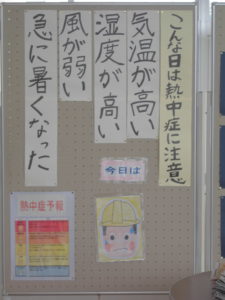 こんな日は熱中症に注意
気温が高い
湿度が高い
風が弱い
急に暑くなった
今日は
熱中症予報